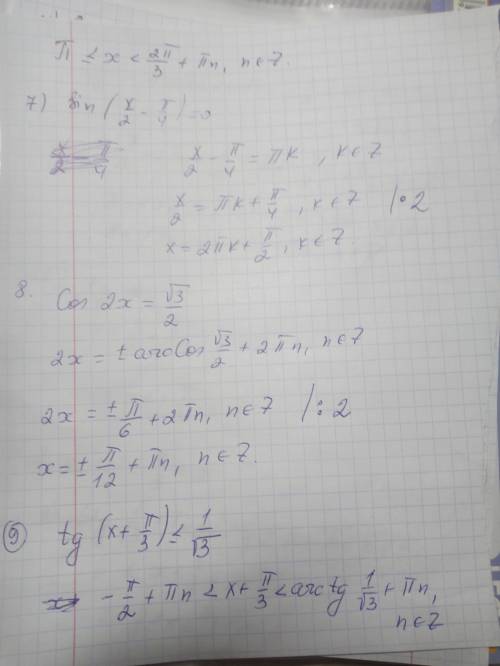 π ≤ x < 2π/3 + πn, n∈Z.
7) Sin (x/2 - π/4) = 0
x/2 - π/4 = πk, k∈Z
x/2 = πk + π/4, k∈Z |·2
x = 2πk + π/2, k∈Z.
8. Cos 2x = √3/2
2x = ± arcCos √3/2 + 2πn, n∈Z
2x = ± π/6 + 2πn, n∈Z |:2
x = ± π/12 + πn, n∈Z.
9) tg (x + π/3) ≤ 1/√3
- π/2 + πn < x + π/3 < arctg 1/√3 + πn,
n∈Z